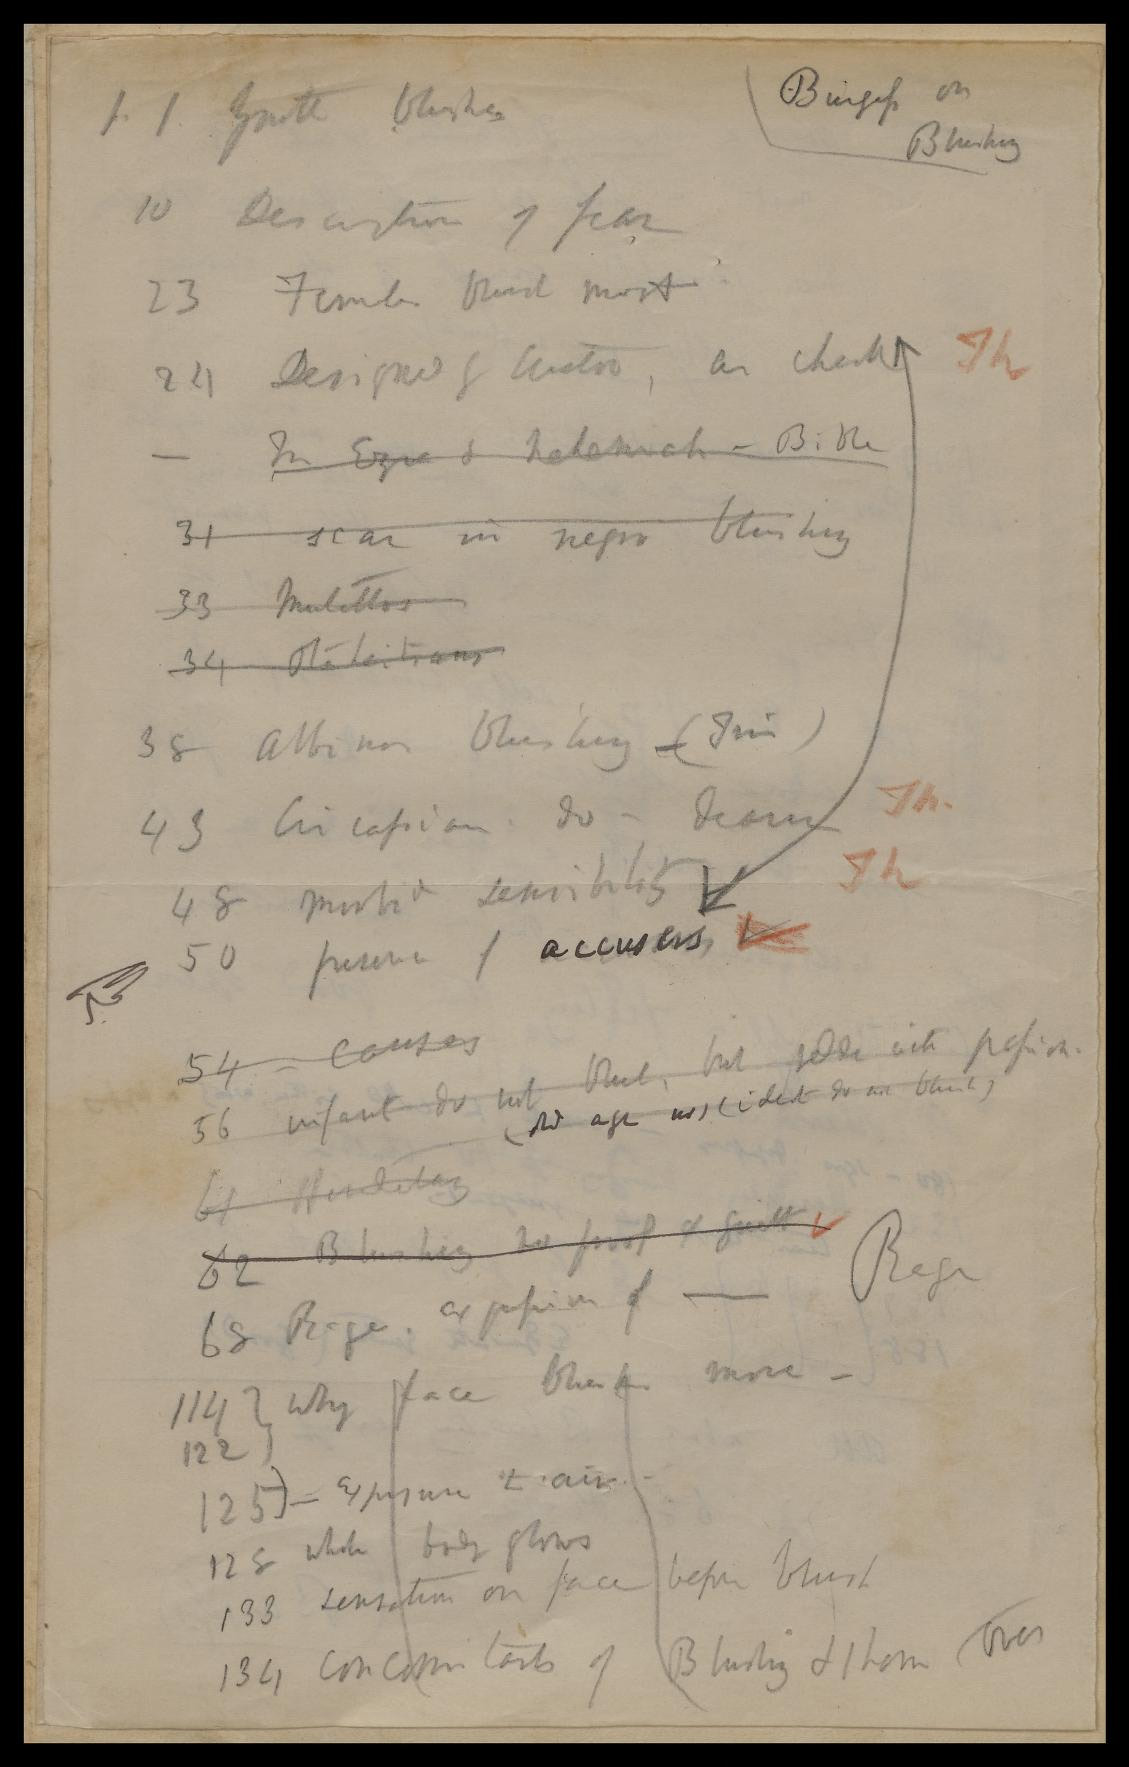 Burgess on
Blushing
1. 1. Youth blushes
10 Description of fear
23 Females blush most
24 Designed by Creator, as check Th
— In Ezra & Nehemiah – Bible
31 scar in negro blushing
33 Mulattos
34 Otaheitians
38 Albinos blushing –
43 Circassian do – Th.
48 morbid sensibility Th
50 presence of accusers,
54 – Causes
56 infant do not blush, but redden with passion.
(old age idiot do not blush)
61 Hereditary
62 Blushing no proof of guilt
68 Rage, expression of — Rage
114 } why face blushes more –
122 }
125 } – Exposure to air –
128 whole body glows
133 sensation on face before blush
134 concomitants of Blushing & Sham (over